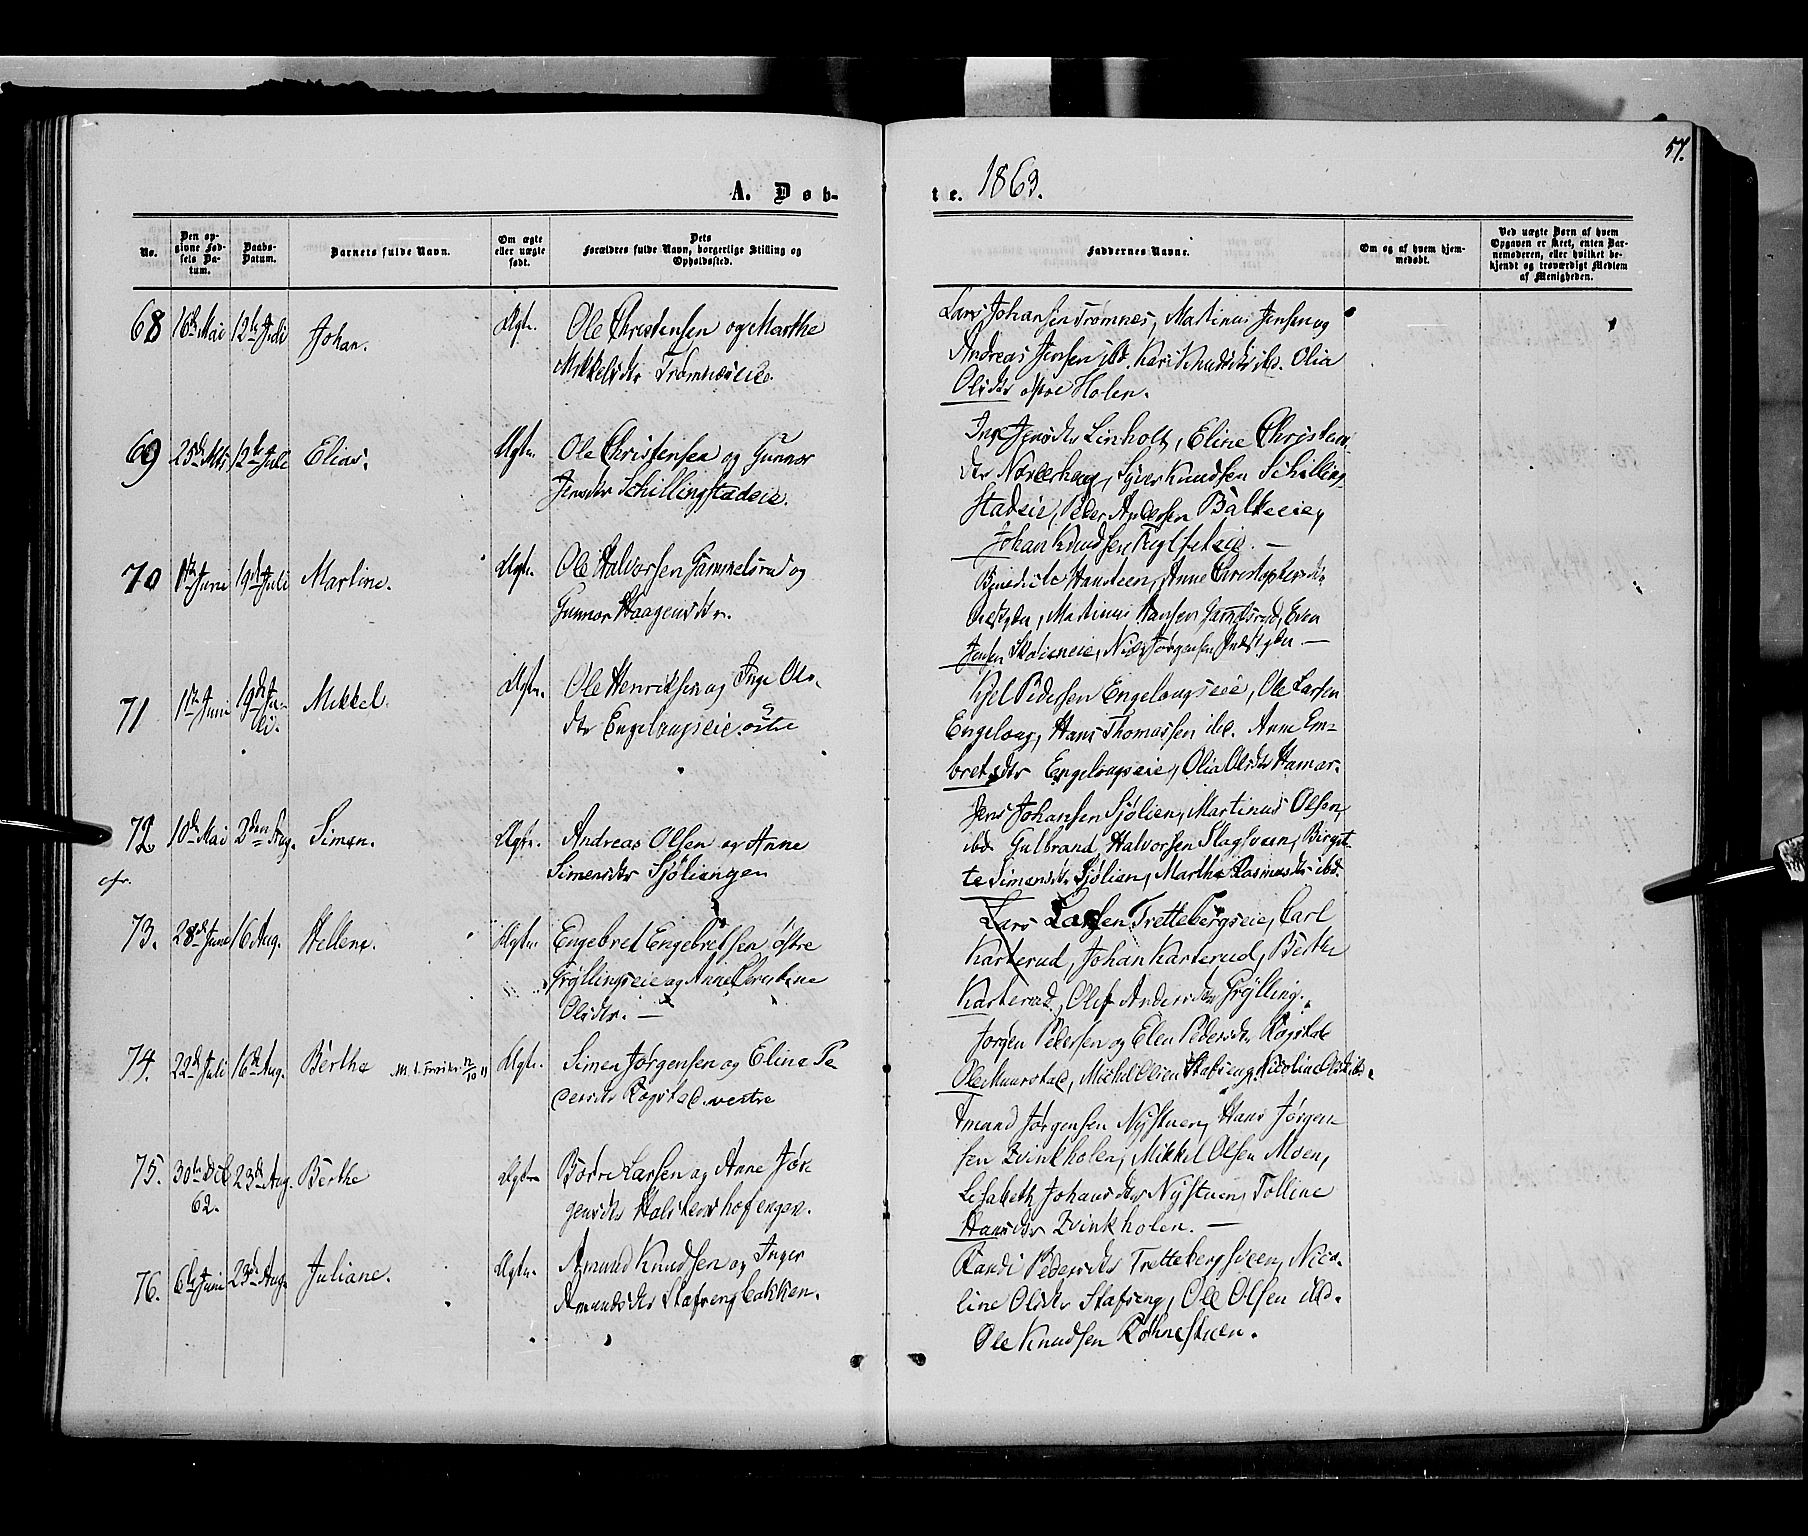 57.
A. Døb-
te. 1863.
No.
Den op-
givne Fød-
sels Da-
tum.
Daabs-
Datum.
Barnets fulde Navn.
Om ægte
eller uægte
født.
Dets
Forældres fulde Navn, borgerlige Stilling og
Opholdssted.
Faddernes Navne.
Om og af hvem hjem-
medøbt.
Ved uægte Børn af hvem
Opgaven er skeet, enten Bar-
nemoderen, eller hvilket be-
kjendt og troværdigt Medlem
af Menigheden.
68 16de Mai 12te Juli Johan. Ægte.
Ole Christensen og Marthe
Mikkelsdtr Trømnæseie.
Lars Johansen Trømnes, Martinus Jensen og
Andreas Jensen ibd. Kari Knudsdtr ibd. Olia
Olsdtr Holen.
69 25de Mai 12te Juli Elias. Ægte
Ole Christensen og Gunnor
Jensdtr Schillingstadeie.
Inge Jensdtr Linholt, Eline Christens
dtr Norderhaug, Syver Knudsen Schilling
stadeie, Peder Andersen Balkeeie,
Johan Knudsen
70 1ste Juni 19de Juli Martine. Ægte.
Ole Halvorsen Gammelsrud og
Gunnor Haagensdtr.
Benedicte Hansteen, Anne Christophersdtr
Martinus Hansen Even
Jensen Niels Jørgensen
71 1ste Juni 19de Ju-
li. Mikkel. Ægte.
Ole Henriksen og Inge Ols-
dtr Engelaugseie østre
Kjel Pedersen Engelaugseie, Ole Larsen
Engelaug, Hans Thomassen ibd. Anne Em-
bretsdtr Engelaugseie, Olia Olsdtr Hamar.
72 10de Mai 2den Aug. Simen. Ægte.
cfr.
Andreas Olsen og Anne
Simensdtr Sjøliengen
Jens Johansen Sjølien, Martinus Olsen,
ibd. Gulbrand Halvorsen Slagsveen, Birgit-
te Simensdtr Sjølien, Marthe Rasmusdtr ibd.
73. 28de Juni 16 Aug. Hellene. Ægte
Engebret Engebretsen østre
Frøllingseie og Anne
Olsdtr. —
Lars Larsen Trettebergseie, Carl
Karterud, Johan Karterud, Berthe
Karterud, Andersdtr Frølling.
74. 22de Juli 16de Aug. Berthe Ægte.
Simen Jørgensen og Eline Pe
dersdtr Rogstad vestre
Jørgen Pedersen og Elen Pedersdtr Rogstad
Ole Michel Olsen Stafseng, Nicoline Olsdtr ibd.
75. 30te Dcb
62. 23de Aug. Berthe Ægte
Børre Larsen og Anne Jør-
gensdtr Halstenshofengen.
Amund Jørgensen Nystuen, Hans Jørgen-
sen Kvinkholen, Mikkel Olsen Moen,
Lisabeth Johansdtr Nystuen, Tolline
Hansdtr Kvinkholen. —
76. 6te Juni 23de Aug. Juliane. Ægte.
Amund Knudsen og Inger
Amundsdtr Stafsengbakken.
Randi Pedersdtr Trettebergsveen, Nico-
line Olsdtr Stafseng, Ole Olsen ibd.
Ole Knudsen Røhnestuen.